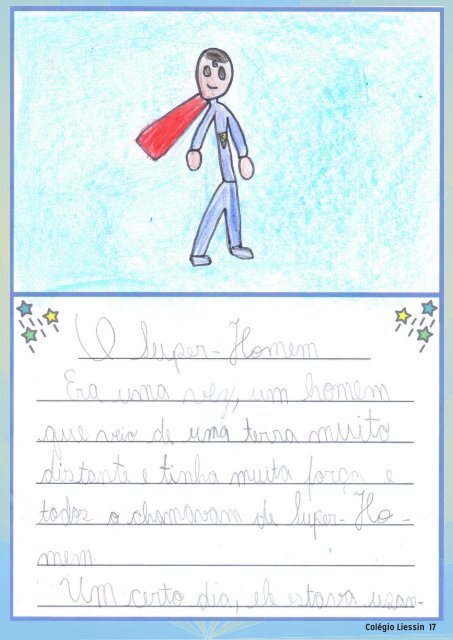 O Super-Homem
Era uma vez, um homem
que veio de uma terra muito
distante e tinha muita força e
todos o chamavam de Super-Ho-
mem
Um certo dia, ele estava usan-
Colégio Liessin 17